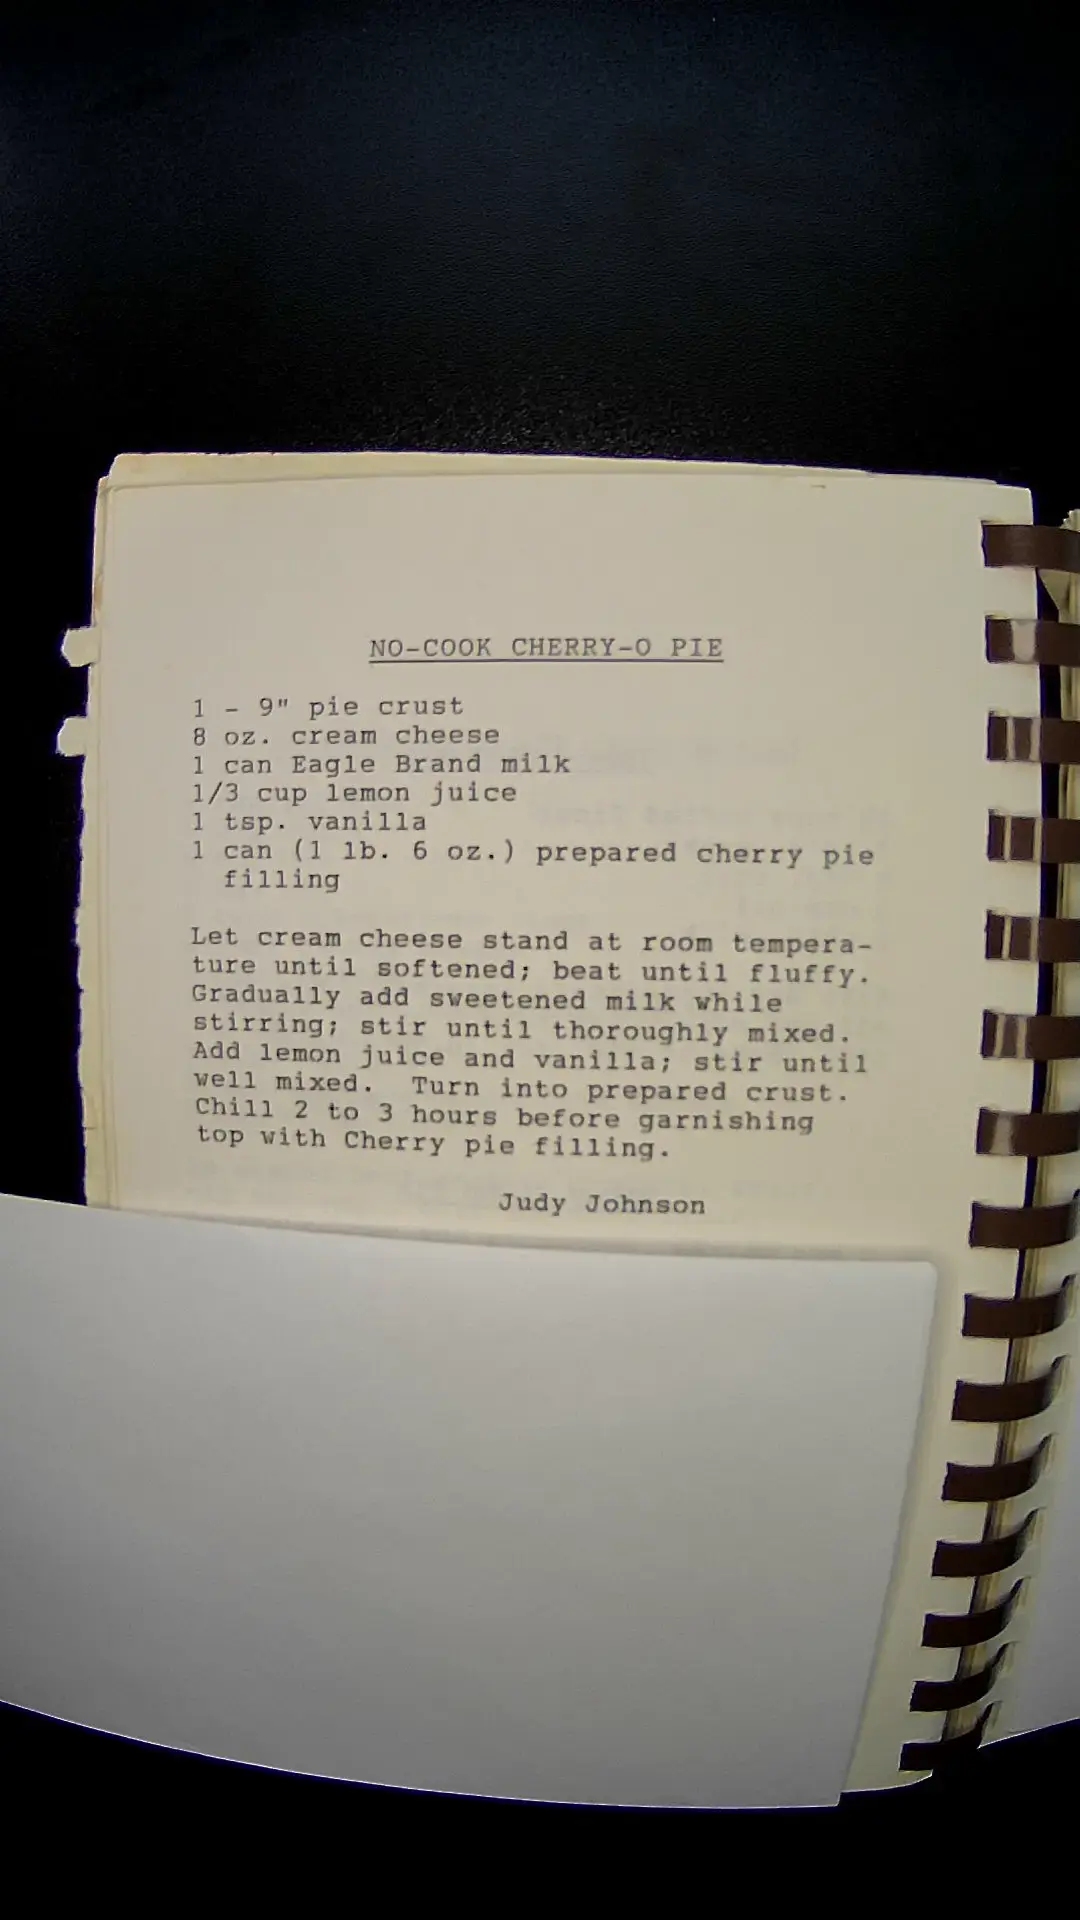 NO-COOK CHERRY-O PIE
1 - 9" pie crust
8 oz. cream cheese
1 can Eagle Brand milk
1/3 cup lemon juice
1 tsp. vanilla
1 can (1 lb. 6 oz.) prepared cherry pie
filling
Let cream cheese stand at room tempera-
ture until softened; beat until fluffy.
Gradually add sweetened milk while
stirring; stir until thoroughly mixed.
Add lemon juice and vanilla; stir until
well mixed.  Turn into prepared crust.
Chill 2 to 3 hours before garnishing
top with Cherry pie filling.
Judy Johnson